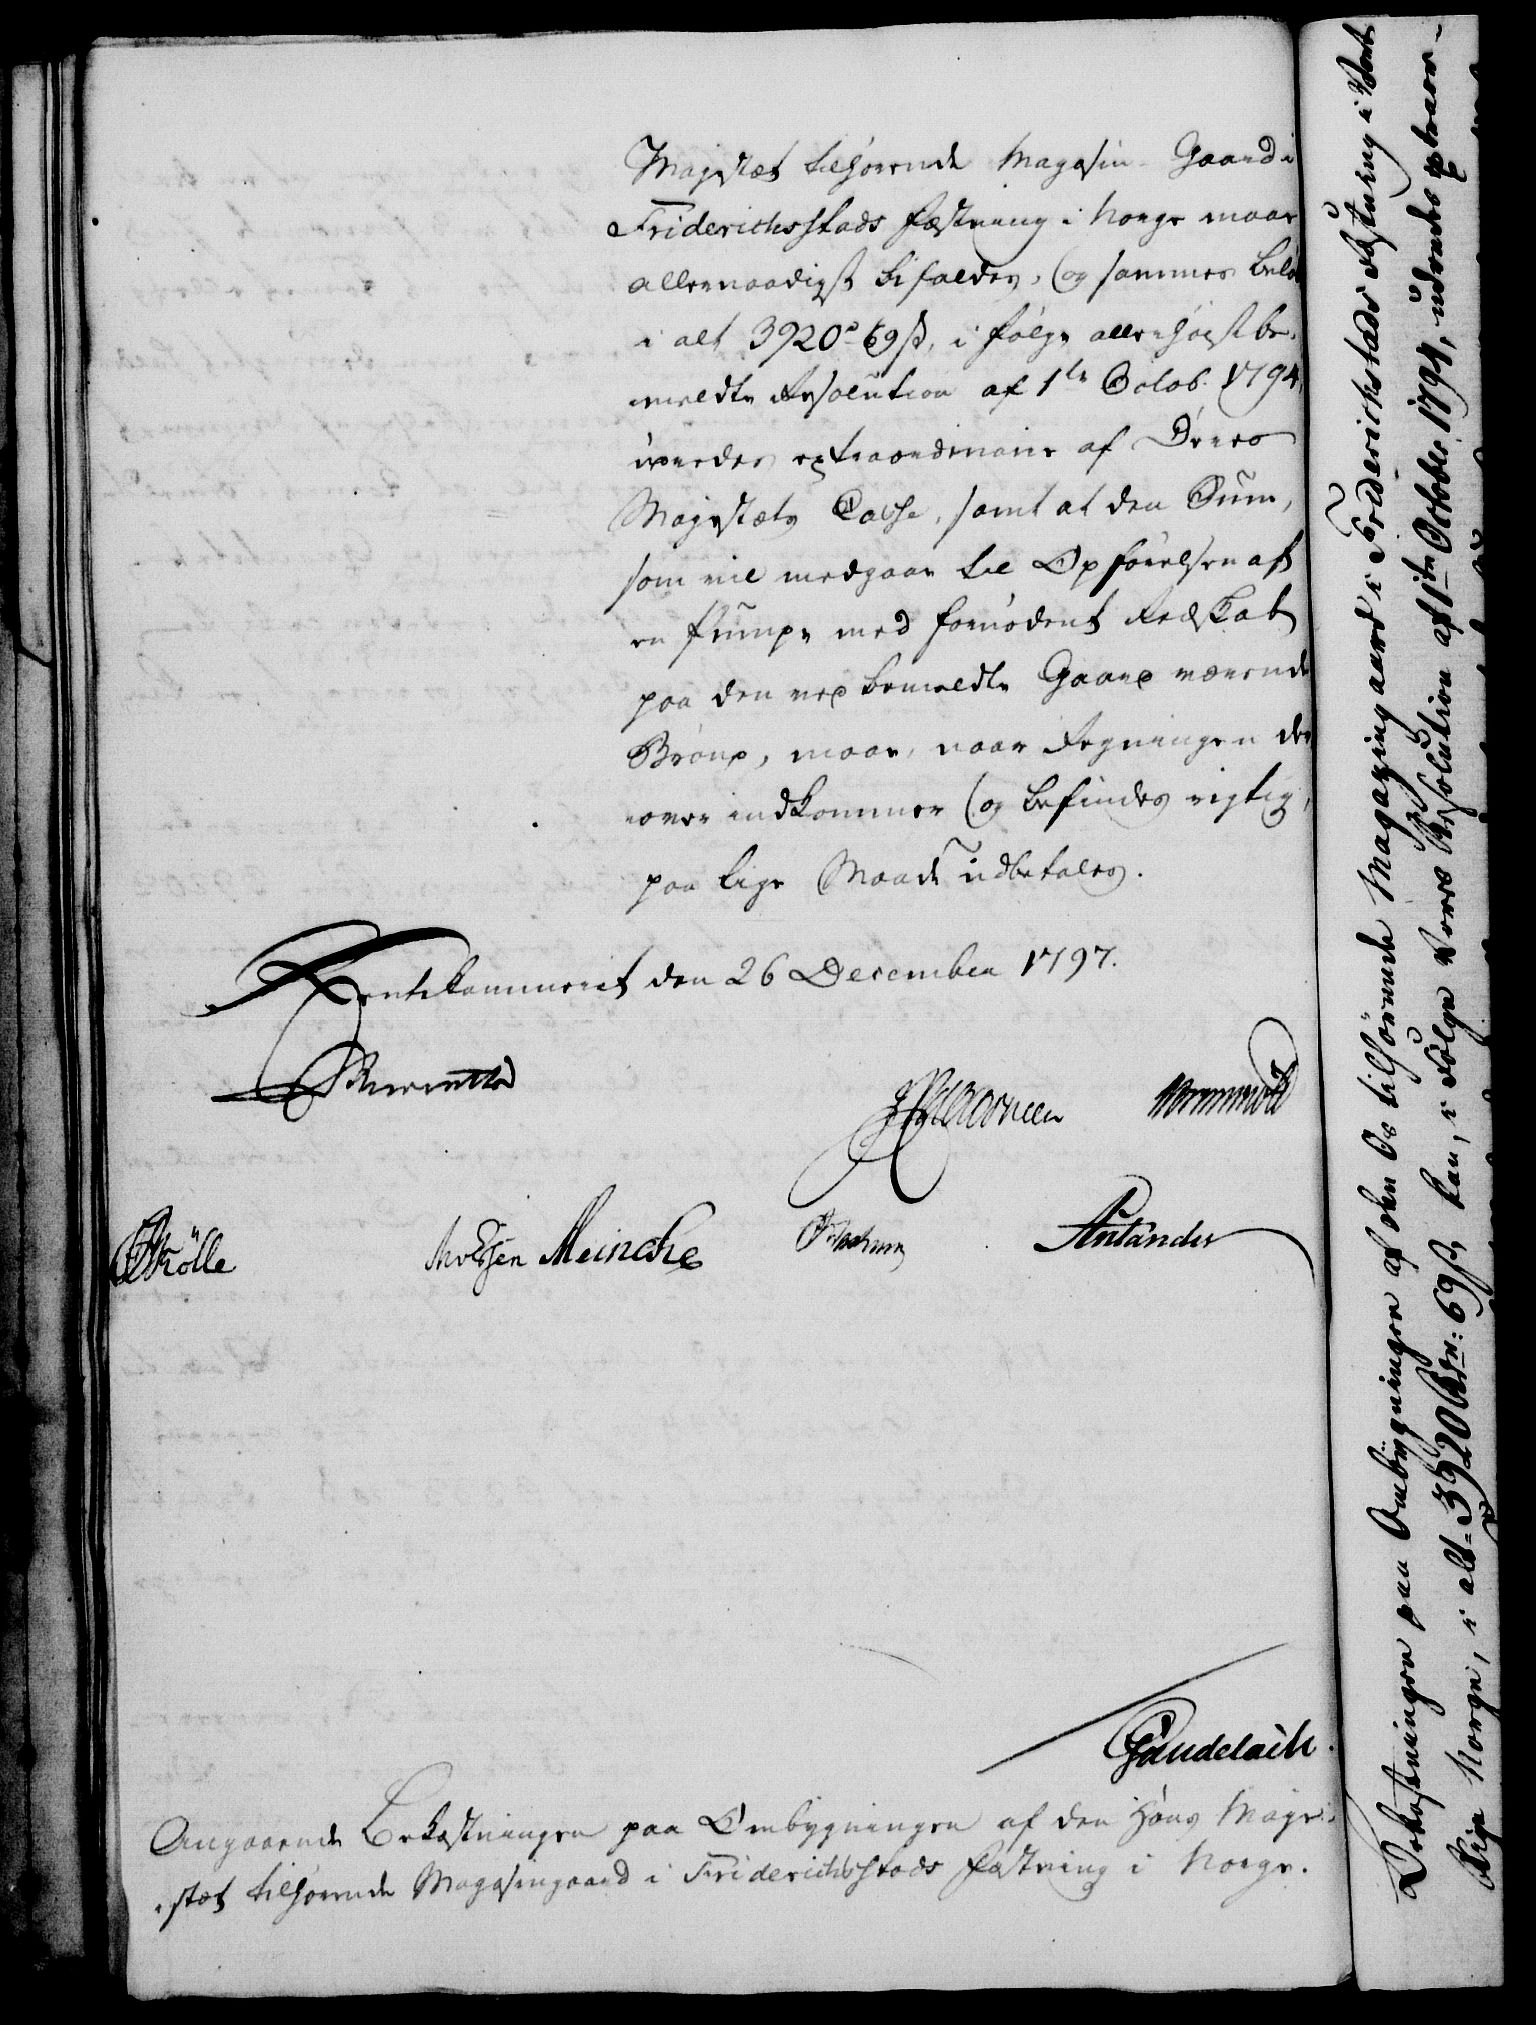 Majestæt tilhørende Magasin-Gaard i
Friderichsstads Fæstning i Norge maae
allernaadigst bifaldes, og sammes Belø
i alt 3920 rd 69 ß, i følge allerhøistbe-
meldte Resolution af 1te Octob. 1794,
udredes extraordinair af Deres
Majestæts Casse, samt at den Sum,
som vil medgaae til Opførelsen af
en Pumpe med fornødent Redskab
paa den ved bemeldte Gaard værende
Brønd, maae, naar Regningen der
over indkommer og befindes rigtig,
paa lige Maade udbetales.
Rentekammeret den 26 December 1797.
Wormskiold
Rölle Meincke
Gündelach.
Angaaende Bekostningen paa Ombygningen af den Hans Maje-
stæt tilhørende Magasingaard i Friderichsstads Fæstning i Norge.
Bekostningen paa Ombygningen af den Os tilhørende Magazingaard i Friderichstads Fæstning i Vort
Rige Norge, i alt 3920 Rdr: 69 ß, kan, i Følge Vores Resolution af 1te October 1794, udredes extraor-